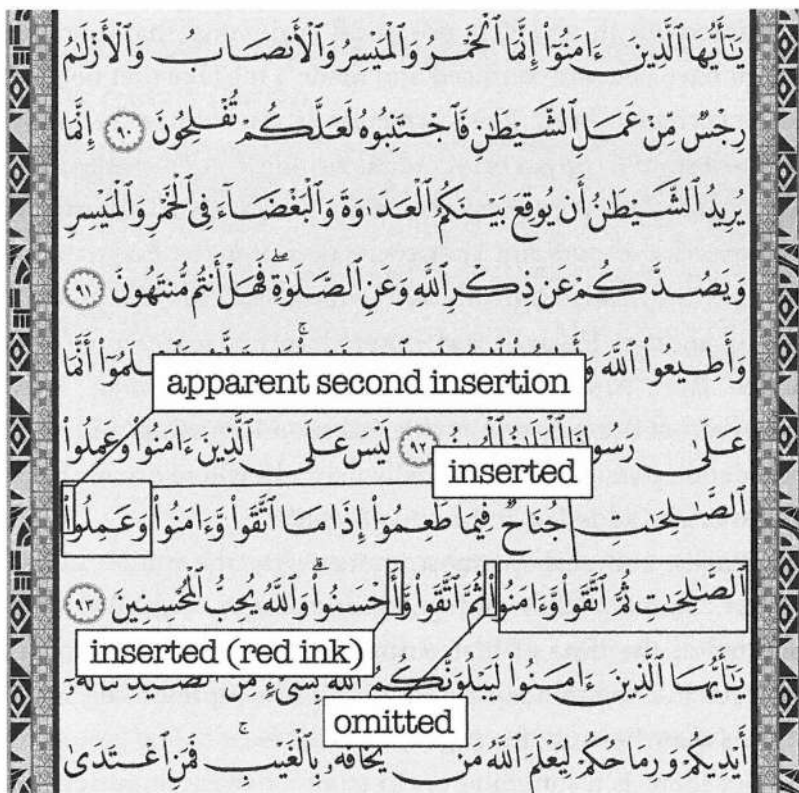 يَـٰٓأَيُّهَا ٱلَّذِينَ ءَامَنُوٓا۟ إِنَّمَا ٱلْخَمْرُ وَٱلْمَيْسِرُ وَٱلْأَنصَابُ وَٱلْأَزْلَـٰمُ
رِجْسٌ مِّنْ عَمَلِ ٱلشَّيْطَـٰنِ فَٱجْتَنِبُوهُ لَعَلَّكُمْ تُفْلِحُونَ ٩٠ إِنَّمَا
يُرِيدُ ٱلشَّيْطَـٰنُ أَن يُوقِعَ بَيْنَكُمُ ٱلْعَدَٰوَةَ وَٱلْبَغْضَآءَ فِى ٱلْخَمْرِ وَٱلْمَيْسِرِ
وَيَصُدَّكُمْ عَن ذِكْرِ ٱللَّهِ وَعَنِ ٱلصَّلَوٰةِ ۖ فَهَلْ أَنتُم مُّنتَهُونَ ٩١
وَأَطِيعُوا۟ ٱللَّهَ أَنَّمَا
apparent second insertion
عَلَىٰ ٩٢ لَيْسَ عَلَى ٱلَّذِينَ ءَامَنُوا۟ وَعَمِلُوا۟
inserted
ٱلصَّـٰلِحَـٰتِ جُنَاحٌ فِيمَا طَعِمُوٓا۟ إِذَا مَا ٱتَّقَوا۟ وَّءَامَنُوا۟ وَعَمِلُوا۟
ٱلصَّـٰلِحَـٰتِ ثُمَّ ٱتَّقَوا۟ وَّءَامَنُوا۟ ثُمَّ ٱتَّقَوا۟ وَّأَحْسَنُوا۟ ۗ وَٱللَّهُ يُحِبُّ ٱلْمُحْسِنِينَ ٩٣
inserted (red ink)
يَـٰٓأَيُّهَا ٱلَّذِينَ ءَامَنُوا۟ لَيَبْلُوَنَّكُمُ ٱللَّهُ بِشَىْءٍ مِّنَ ٱلصَّيْدِ تَنَالُهُۥٓ
omitted
أَيْدِيكُمْ وَرِمَاحُكُمْ لِيَعْلَمَ ٱللَّهُ مَن يَخَافُهُۥ بِٱلْغَيْبِ ۚ فَمَنِ ٱعْتَدَىٰ